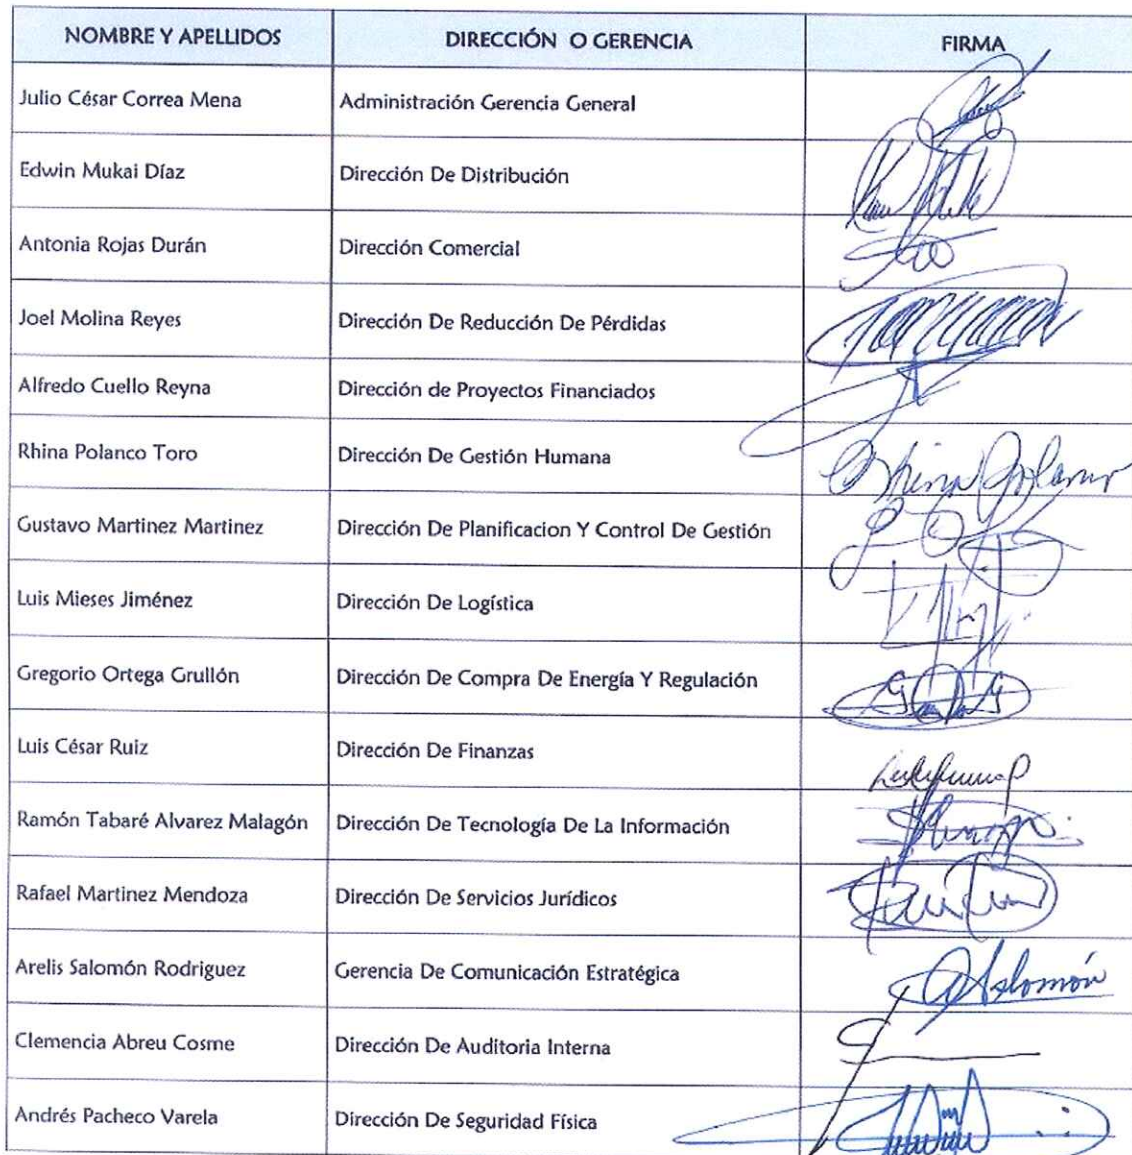 NOMBRE Y APELLIDOS DIRECCIÓN O GERENCIA FIRMA
Julio César Correa Mena Administración Gerencia General
Edwin Mukai Díaz Dirección De Distribución
Antonia Rojas Durán Dirección Comercial
Joel Molina Reyes Dirección De Reducción De Pérdidas
Alfredo Cuello Reyna Dirección de Proyectos Financiados
Rhina Polanco Toro Dirección De Gestión Humana Rhina Polanco
Gustavo Martinez Martinez Dirección De Planificacion Y Control De Gestión
Luis Mieses Jiménez Dirección De Logística
Gregorio Ortega Grullón Dirección De Compra De Energía Y Regulación
Luis César Ruiz Dirección De Finanzas
Ramón Tabaré Alvarez Malagón Dirección De Tecnología De La Información
Rafael Martinez Mendoza Dirección De Servicios Jurídicos
Arelis Salomón Rodriguez Gerencia De Comunicación Estratégica Salomón
Clemencia Abreu Cosme Dirección De Auditoria Interna
Andrés Pacheco Varela Dirección De Seguridad Física